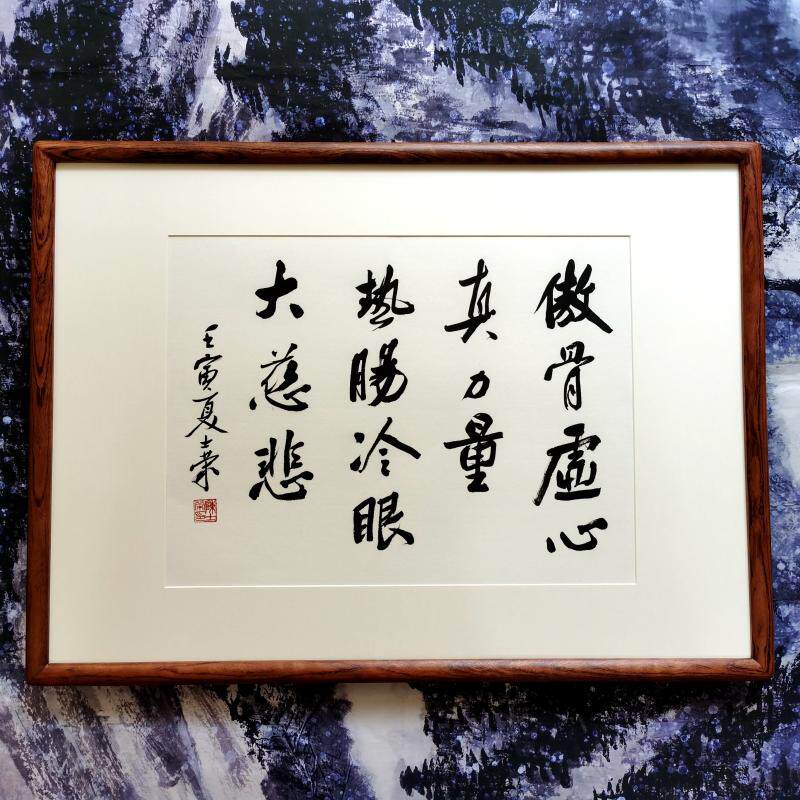 傲骨虛心
真力量
熱腸冷眼
大慈悲
壬寅夏士榮